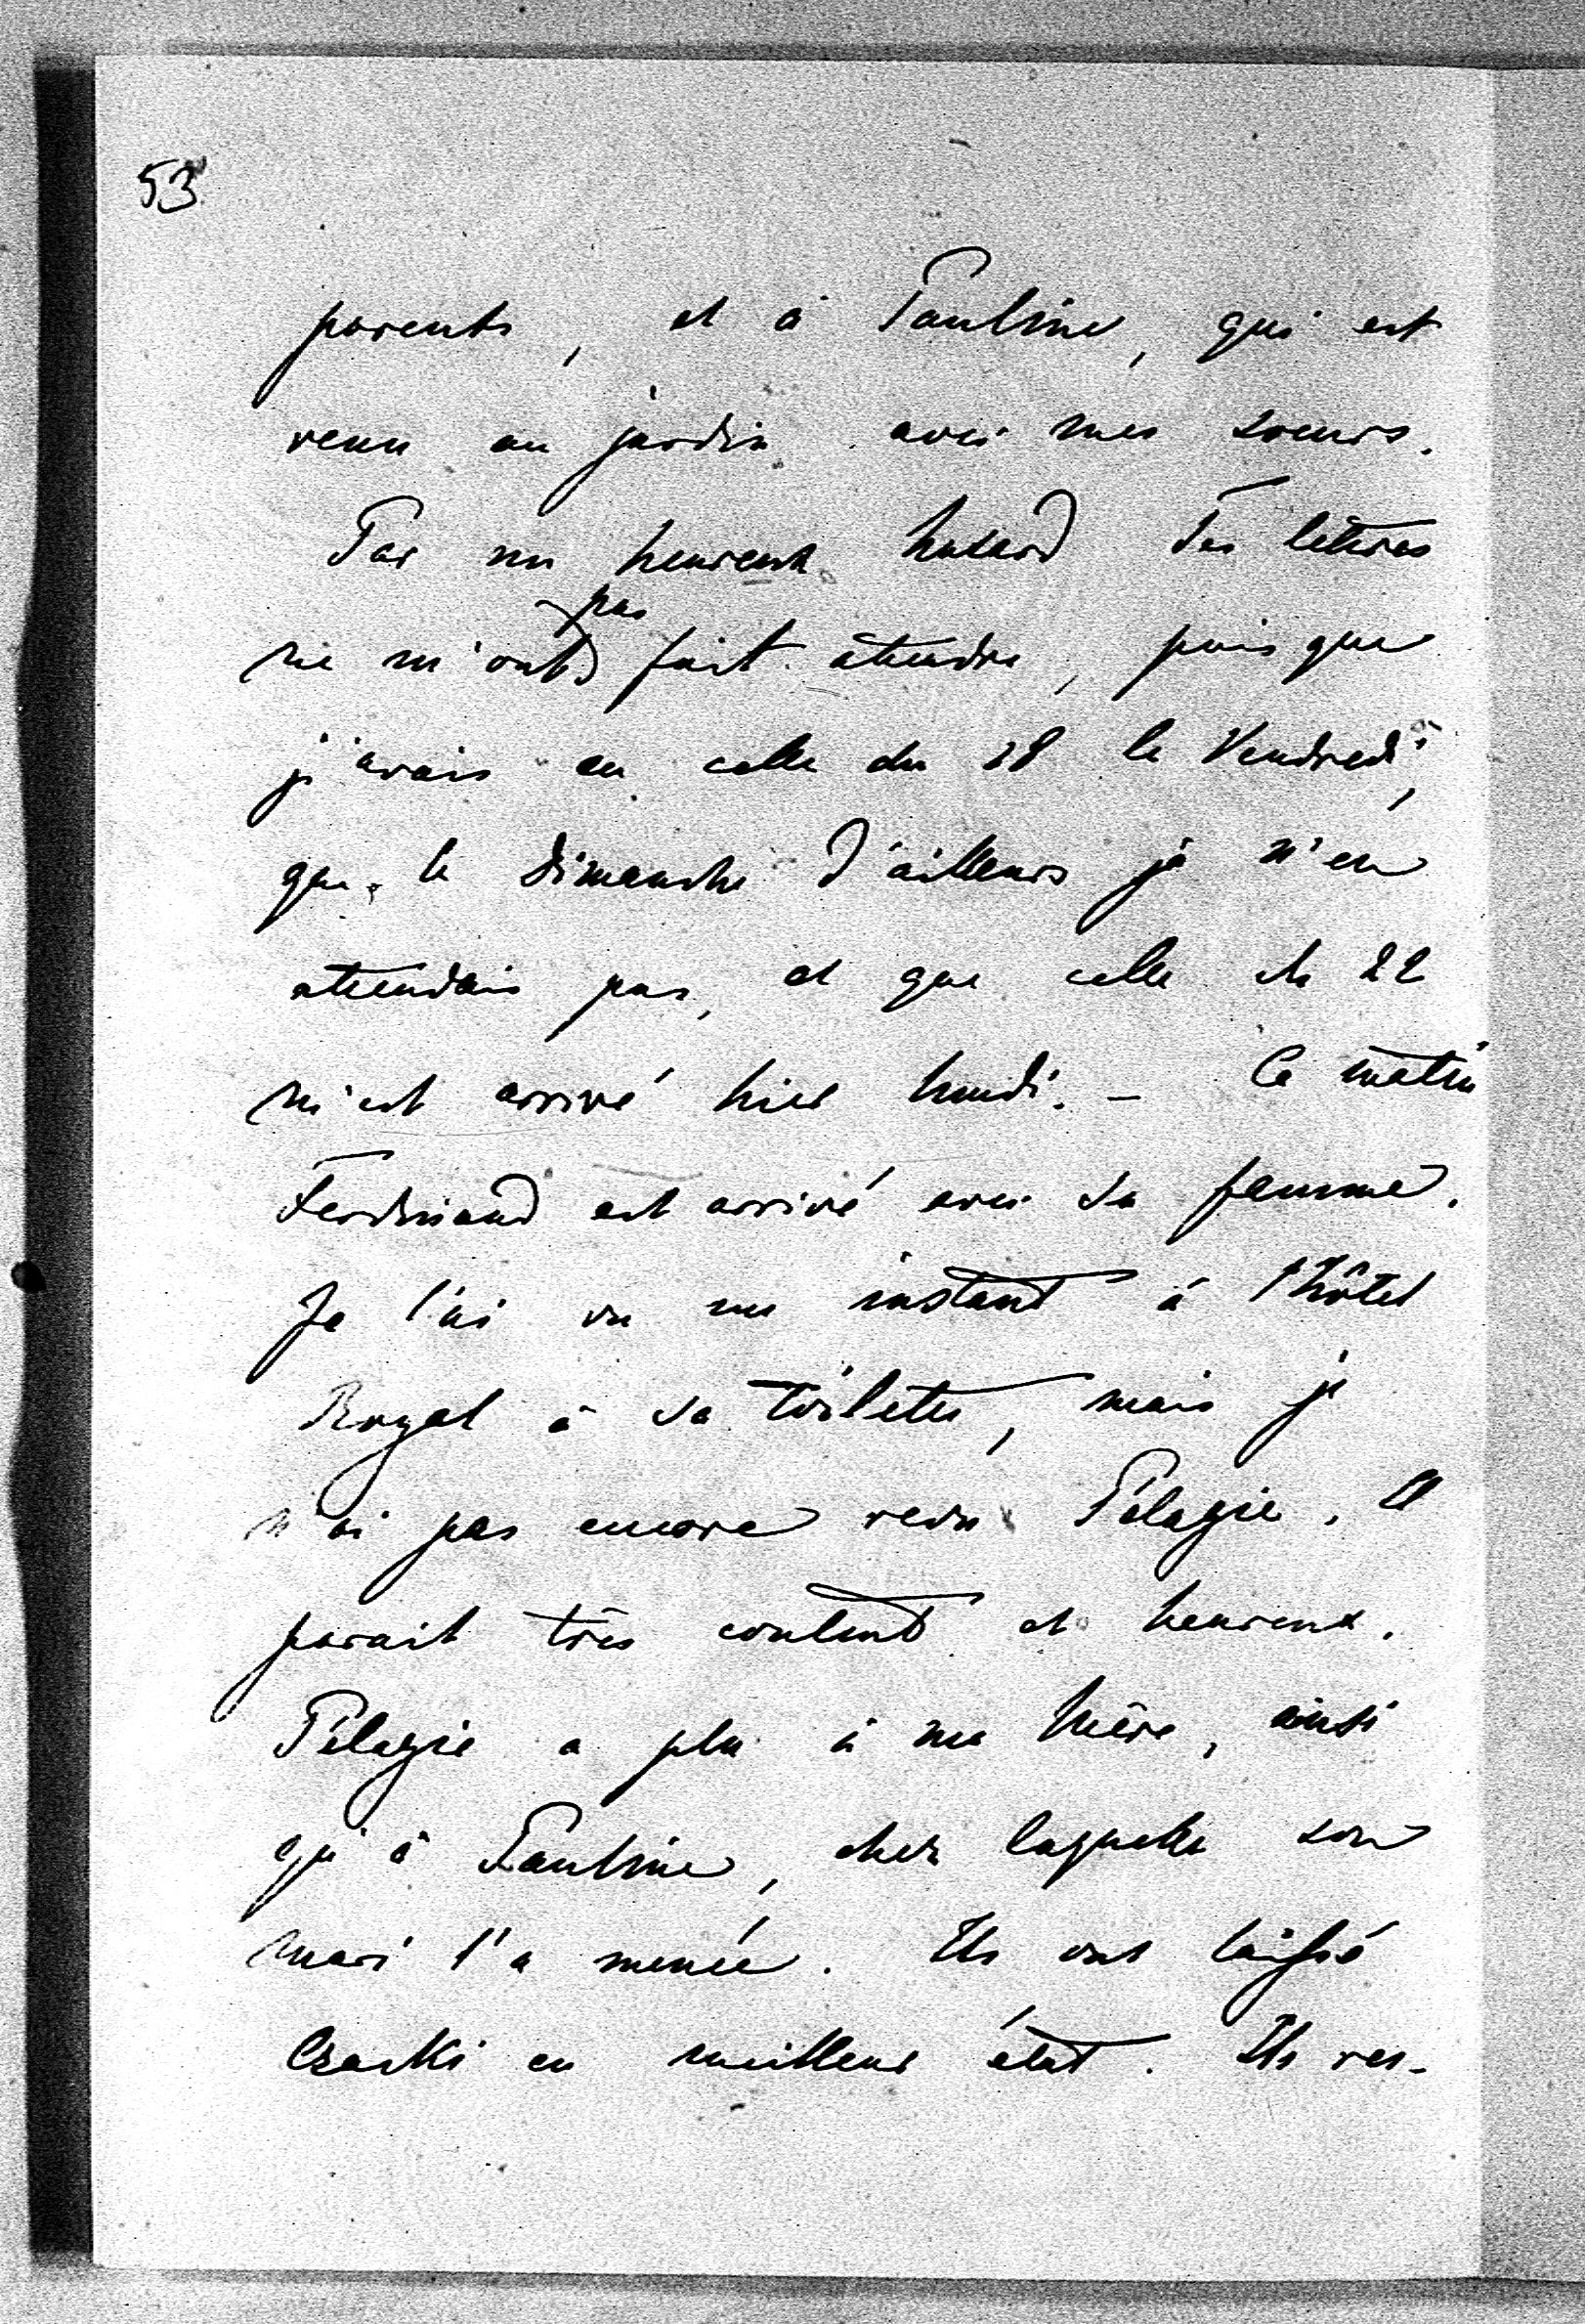 53
parents, et à Pauline, qui est
venu au jardin avec mes soeurs.
Par un heureux hasard Tes lettres
pas
ne m'ont fait attendre, puisque
j'avais eu celle du 18 le Vendredi,
que le Dimanche d'ailleurs je n'en
attendais pas, et que celle du 22
m'est arrivé hier lundi. – Ce matin
Ferdinand est arrivé avec sa femme.
Je l'ai vu un instant à l'hôtel
Royal à sa toilette, mais je
n'ai pas encore revu Pélagie. Il
parait très content et heureux.
Pélagie a plu à ma Mère, ainsi
qu'à Pauline, chez laquelle son
mari l'a menée. Ils ont laissé
Czacki en meilleur état. Ils res-